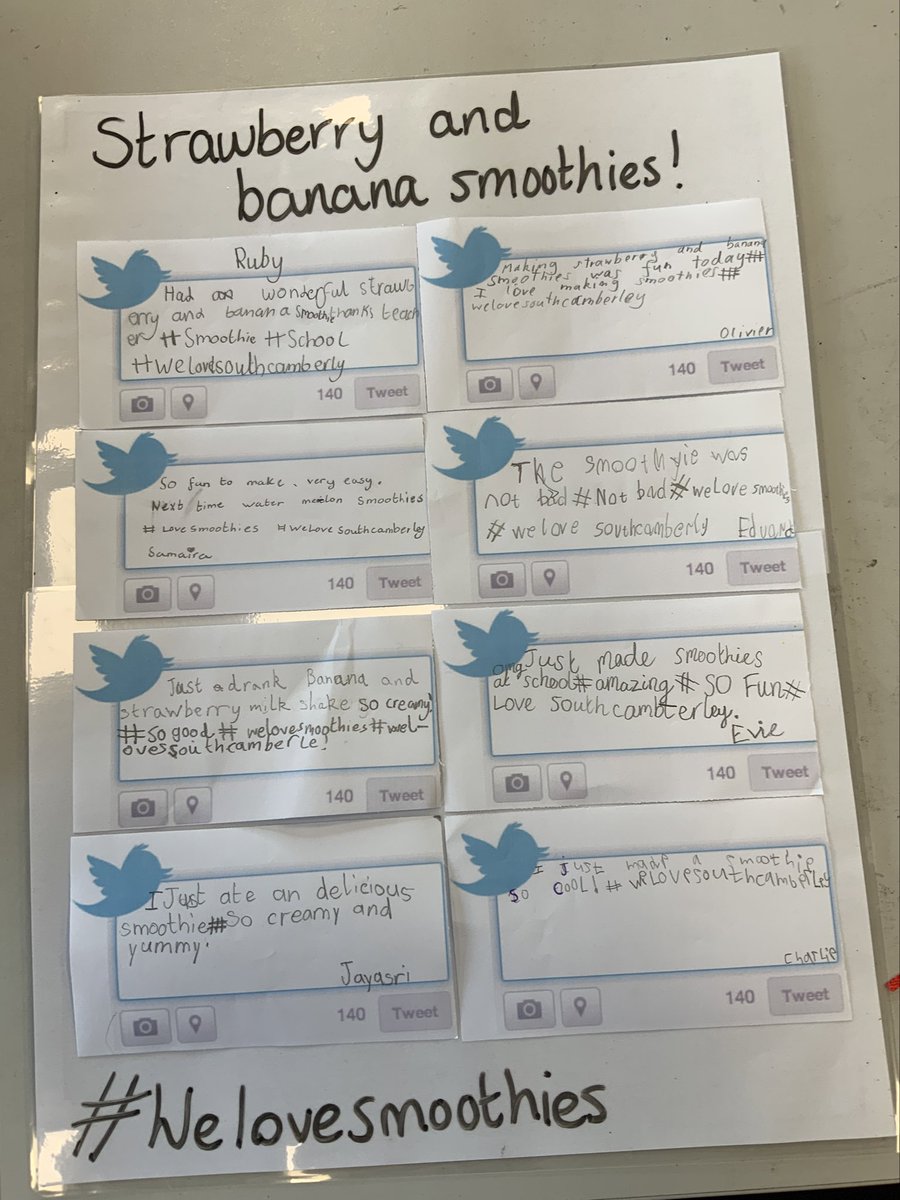 Strawberry and
banana smoothies!
Ruby
Had a wonderful strawb
erry and banana smoothie thanks teach
er #Smoothie #School
#welovesouthcamberly
140 Tweet
Making strawberry and banana
smoothies was fun today#
I love making smoothies#
welovesouthcamberley
Olivier
140 Tweet
So fun to make, very easy.
Next time water melon Smoothies
# Lovesmoothies #WeLovesouthcamberley
Samaira
140 Tweet
The smoothyie was
not bad #Not bad# welove smoothies
# we love southcamberly Eduard
140 Tweet
Just a drank Banana and
strawberry milk shake so creamy!
#so good # welovesmoothies#wel-
ovessouthcamberle!
140 Tweet
omg Just made smoothies
at school# amazing # SO Fun#
Love southcamberley.
Evie
140 Tweet
I Just ate an delicious
smoothie#So creamy and
yummy.
Jayasri
140 Tweet
I Just made a smoothie
So COOL! # weLovesouthcamberley
Charlie
140 Tweet
#Welovesmoothies